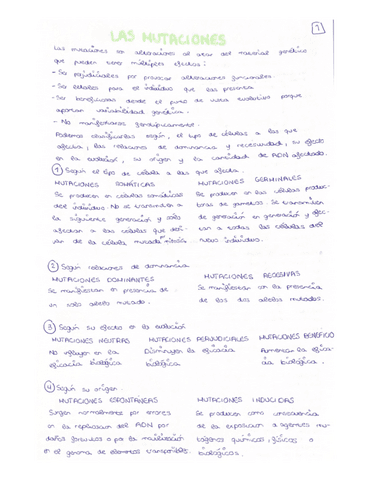 1
LAS MUTACIONES
Las mutaciones son alteraciones al azar del material genético
que pueden tener múltiples efectos:
- Ser perjudiciales por provocar alteraciones funcionales.
- Ser letales para el individuo que las presenta
- Ser beneficiosas desde el punto de vista evolutivo porque
aportan variabilidad genética.
- No manifestarse fenotípicamente.
Podemos clasificarlas según, el tipo de células a las que
afecta, las relaciones de dominancia y recesividad, su efecto
en la evolución, su origen y la cantidad de ADN afectado.
1 Según el tipo de célula a las que afecta:
MUTACIONES SOMÁTICAS MUTACIONES GERMINALES
Se producen en células somáticas Se producen en las células produc-
del individuo. No se transmiten a toras de gametos. Se transmiten
la siguiente generación y solo de generación en generación y afec-
afectan a las células que deri- tan a todas las células del
van de la célula mutada nuevo individuo.
2 Según relaciones de dominancia
MUTACIONES DOMINANTES MUTACIONES RECESIVAS
Se manifiestan en presencia de Se manifiestan con la presencia
un solo alelo mutado. de los dos alelos mutados.
3 Según su efecto en la evolución
MUTACIONES NEUTRAS MUTACIONES PERJUDICIALES MUTACIONES BENEFICIO
No influyen en la Disminuyen la eficacia Aumentan la efica-
eficacia biológica biológica cia biológica.
4 Según su origen:
MUTACIONES ESPONTÁNEAS MUTACIONES INDUCIDAS
Surgen normalmente por errores Se producen como consecuencia
en la replicación del ADN por de la exposición a agentes mu-
daños fortuitos o por la movilización tágenos químicos, físicos o
en el genoma de elementos transponibles. biológicos.